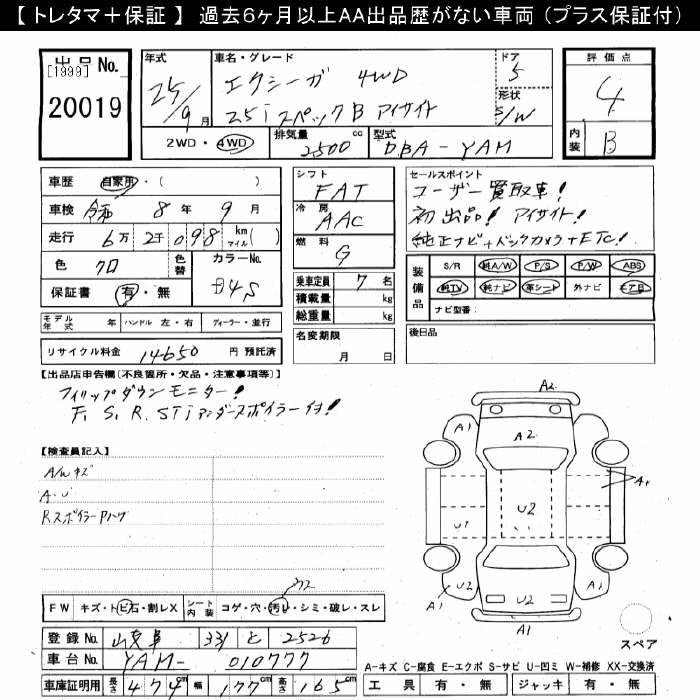 【 トレタマ＋保証 】 過去6ヶ月以上AA出品歴がない車両 (プラス保証付)
出品 No. [1999]
20019
年式 25/9月
車名・グレード エクシーガ 4WD
25i スペックB アイサイト
ドア 5
形状 S/W
評価点 4
内装 B
2WD・4WD 排気量 2500 cc 型式 DBA-YAM
車歴 自家用・( )
車検 令和 8年 9月
走行 6万 2千 098 km マイル( )
色 クロ 色替 カラーNo. D4S
保証書 有・無
シフト FAT
冷房 AAC
燃料 G
乗車定員 7 名
積載量 kg
総重量 kg
名変期限 月 日
セールスポイント
ユーザー買取車!
初出品! アイサイト!
純正ナビ+バックカメラ+ETC!
装備品 S/R 純A/W P/S P/W ABS
純TV 純ナビ 革シート 外ナビ エアB
ナビ型番:
後日品
モデル年式 年 ハンドル 左・右 ディーラー・並行
リサイクル料金 14650 円 預託済
【出品店申告欄(不良箇所・欠品・注意事項等)】
フィリップダウンモニター!
F、S、R、STiアンダースポイラー付!
【検査員記入】
A/Wキズ
A・U
RスポイラーPハゲ
A2
A1 A2 A1
A1
U1 U2
A1 U2 A1
A1
スペア
FW キズ・トビ石・割レX シート内装 コゲ・穴・汚レ・シミ・破レ・スレ
登録 No. 331 と 2526
車台 No. YAM- 010777
車庫証明用 長さ 474 cm 幅 177 cm 高さ 165 cm
A-キズ C-腐食 E-エクボ S-サビ U-凹ミ W-補修 XX-交換済
工具 有・無 ジャッキ 有・無